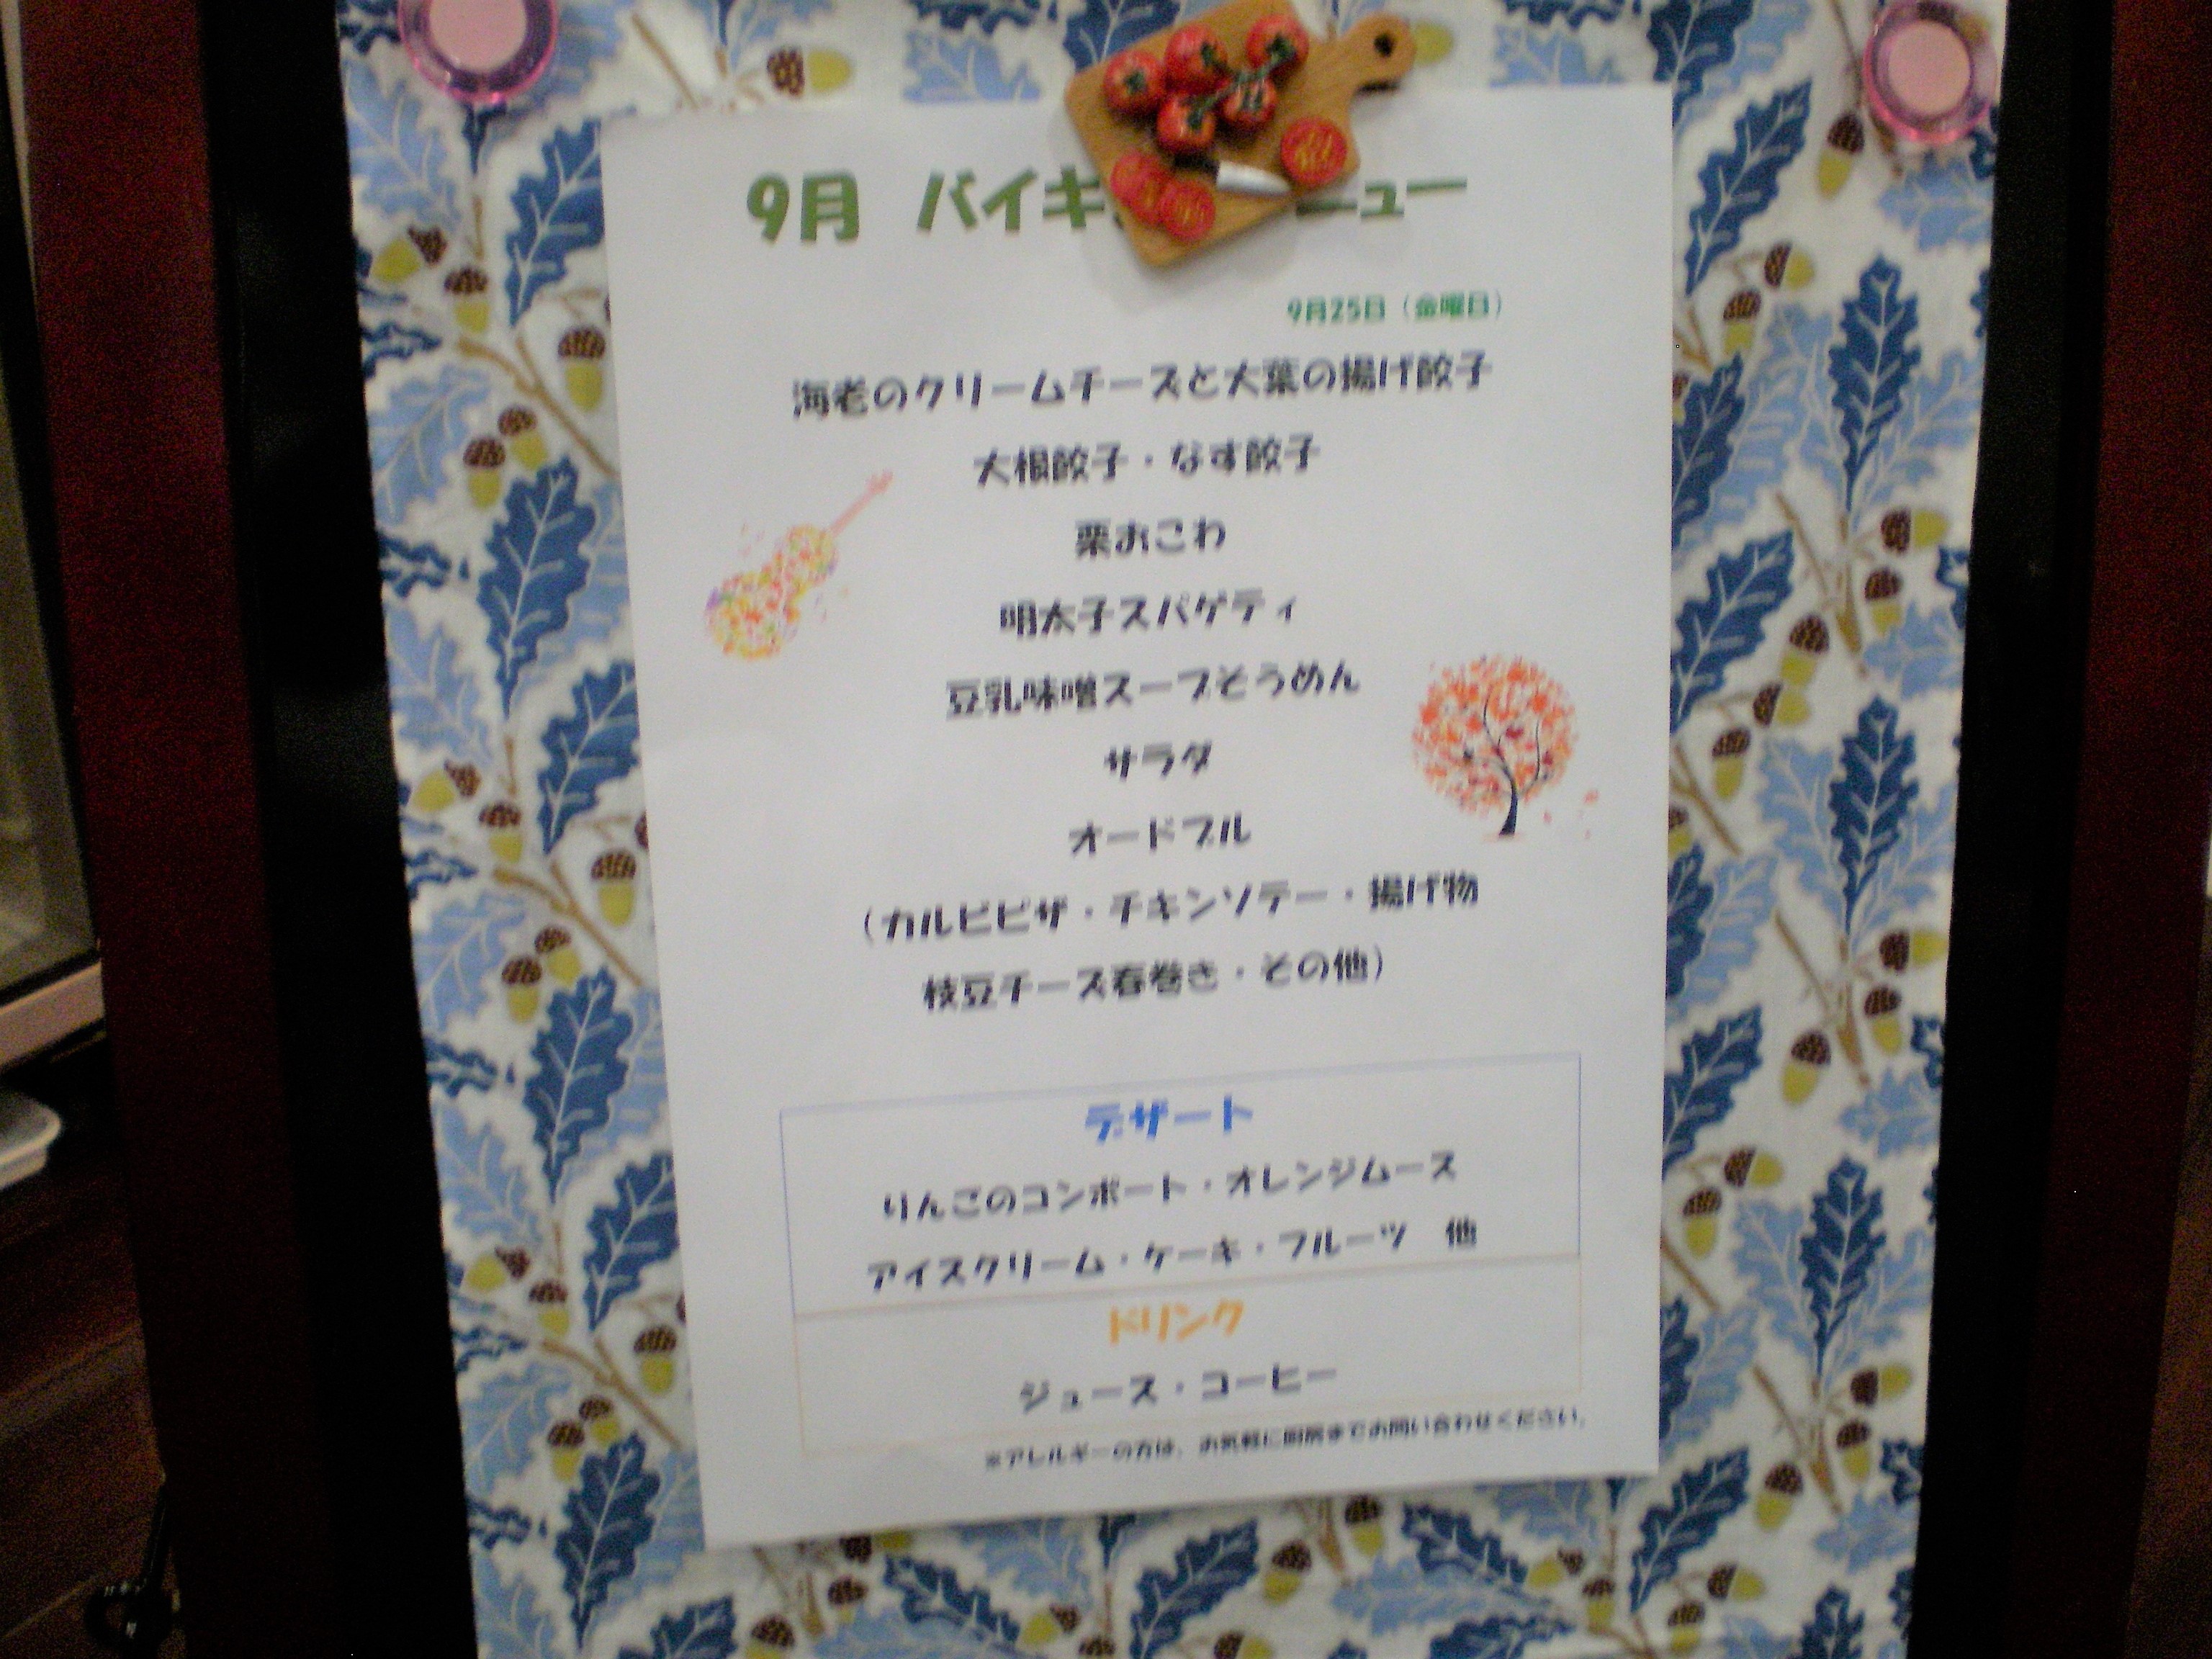 9月 バイキ ニュー
9月25日（金曜日）
海老のクリームチーズと大葉の揚げ餃子
大根餃子・なす餃子
栗おこわ
明太子スパゲティ
豆乳味噌スープそうめん
サラダ
オードブル
（カルビピザ・チキンソテー・揚げ物
枝豆チーズ春巻き・その他）
デザート
りんごのコンポート・オレンジムース
アイスクリーム・ケーキ・フルーツ 他
ドリンク
ジュース・コーヒー
※アレルギーの方は、お気軽に厨房までお問い合わせください。